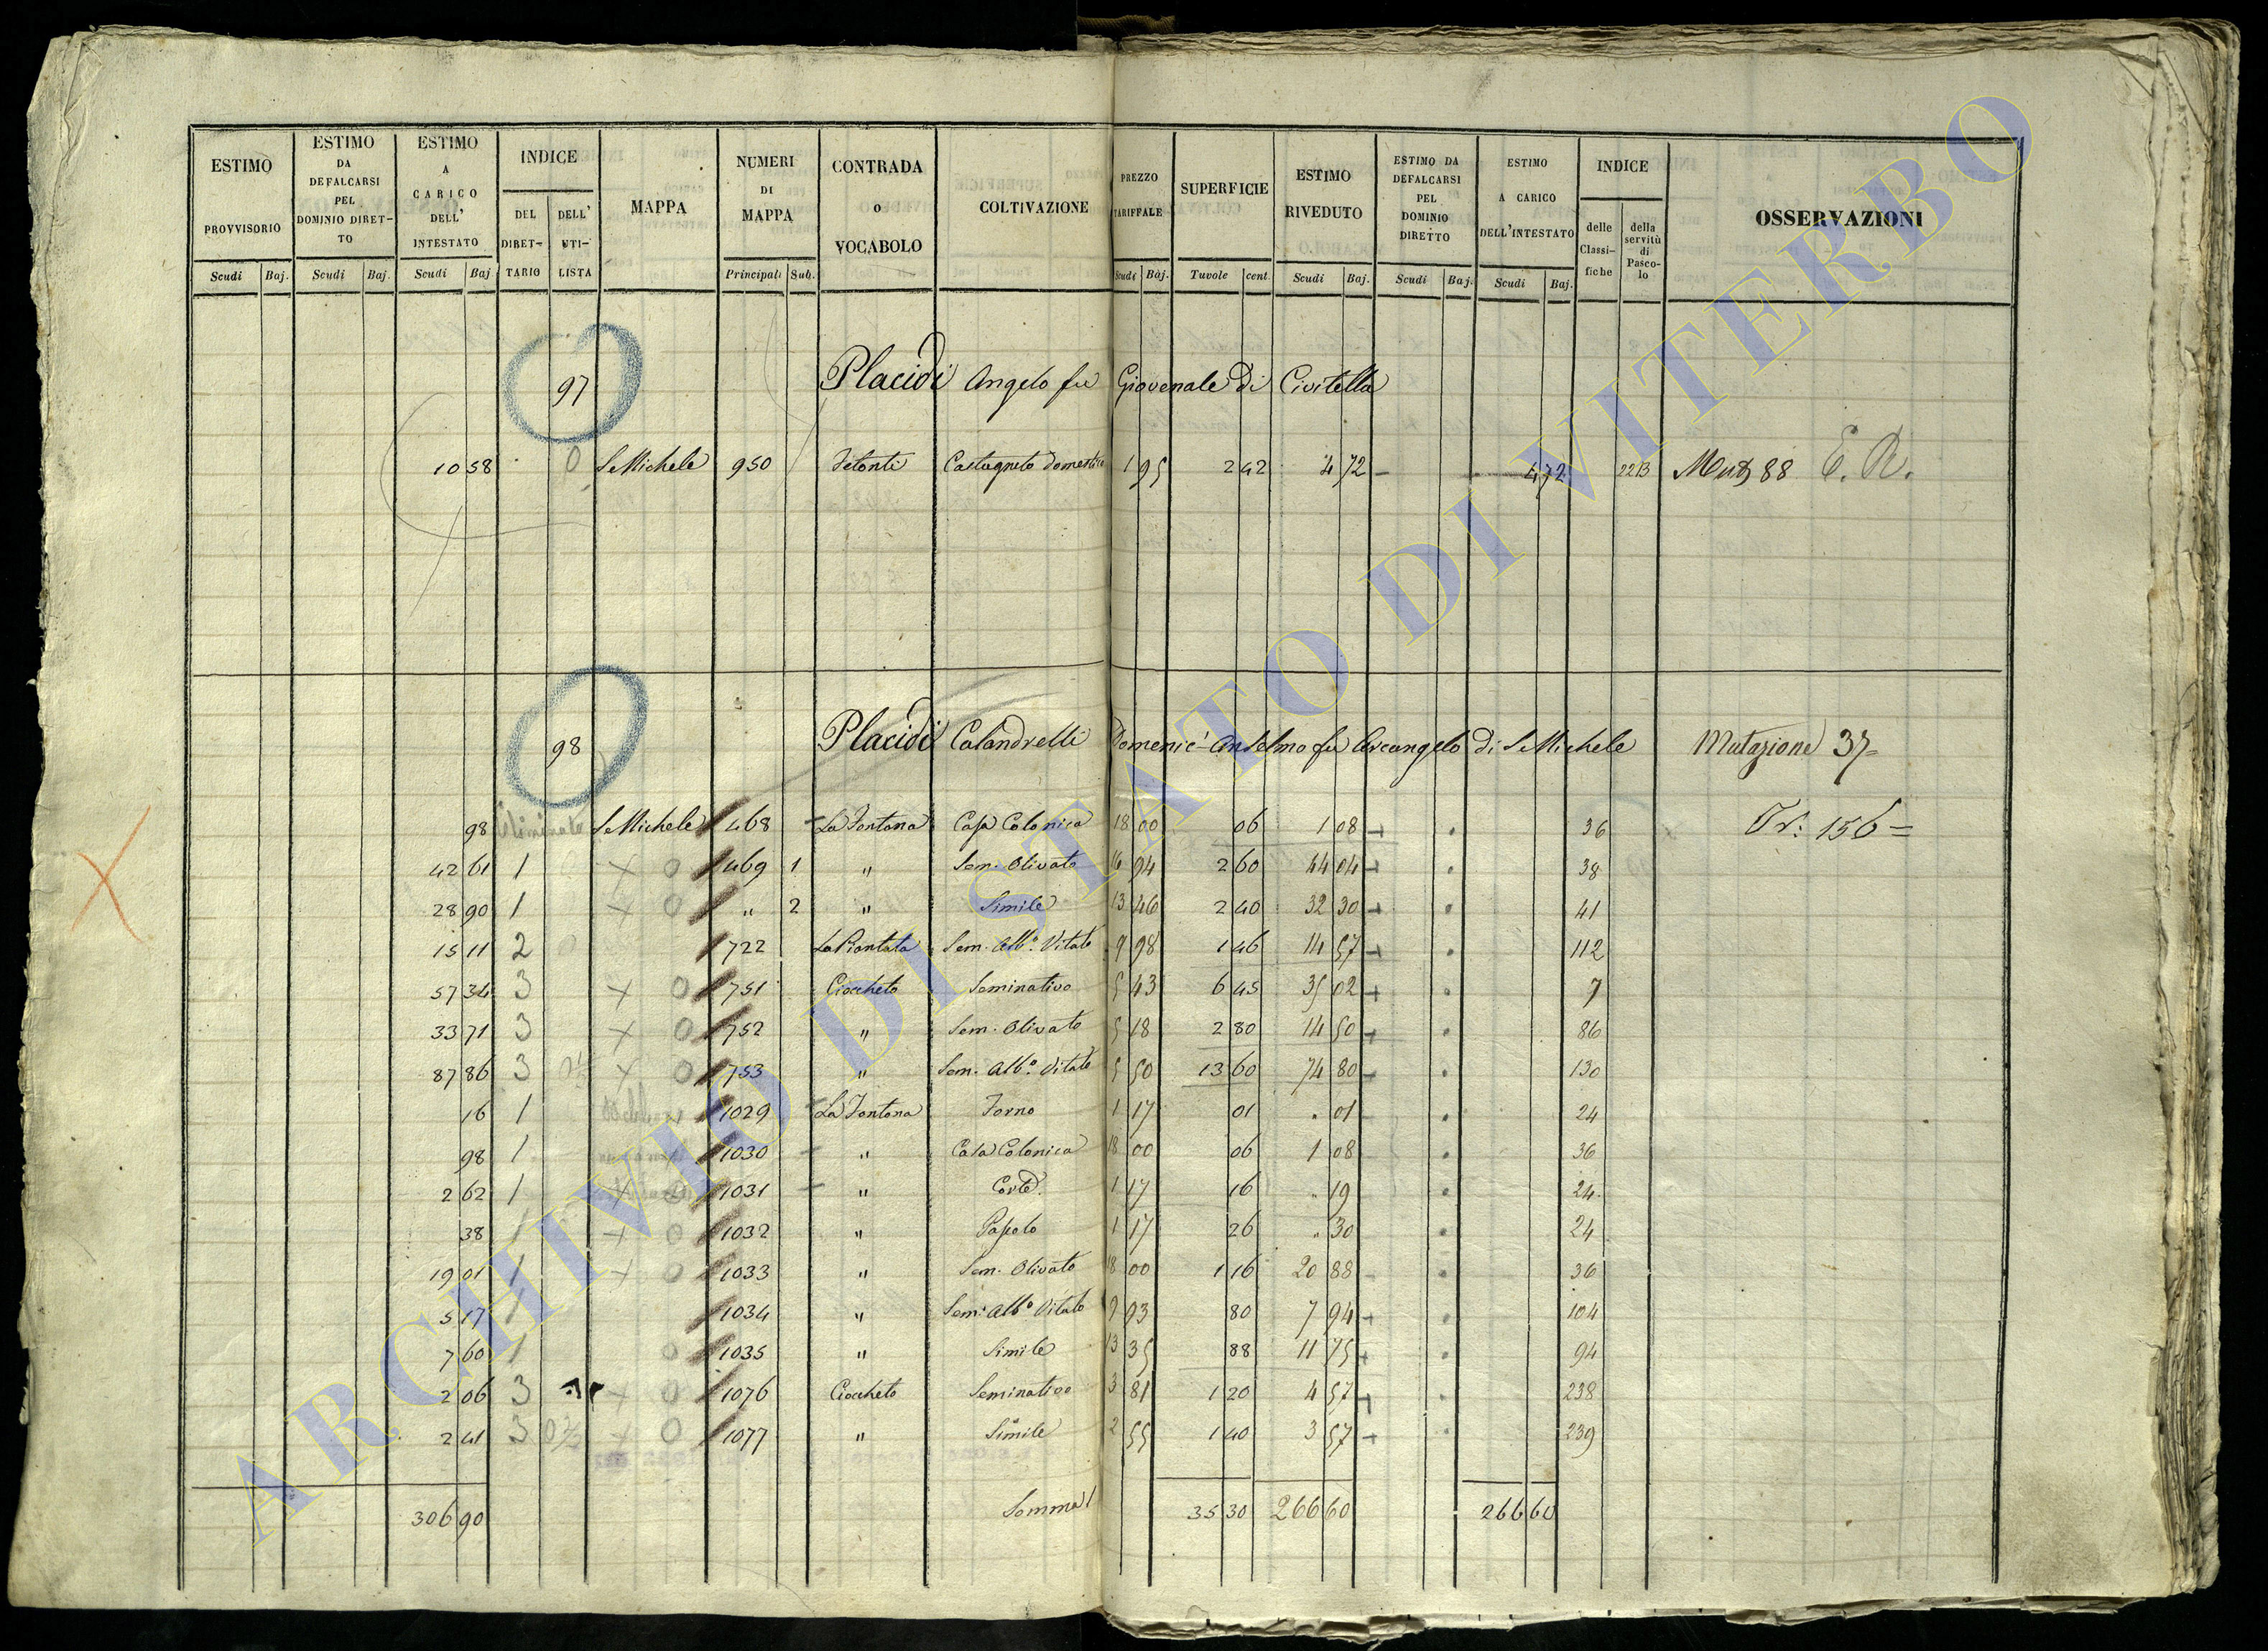 ESTIMO PROVVISORIO Scudi Baj.
ESTIMO DA DEFALCARSI PEL DOMINIO DIRET-TO Scudi Baj.
ESTIMO A CARICO DELL' INTESTATO Scudi Baj
INDICE DEL DIRET-TARIO DELL' UTI-LISTA
MAPPA
NUMERI DI MAPPA Principali Sub.
CONTRADA o VOCABOLO
COLTIVAZIONE
PREZZO TARIFFALE Scudi Baj.
SUPERFICIE Tavole cent.
ESTIMO RIVEDUTO Scudi Baj.
ESTIMO DA DEFALCARSI PEL DOMINIO DIRETTO Scudi Baj.
ESTIMO A CARICO DELL'INTESTATO Scudi Baj.
INDICE delle Classi-fiche della servitù di Pasco-lo
OSSERVAZIONI
97 Placidi Angelo fu Giovenale di Civitella
10 58 0 S. Michele 950 Castagneto Domestico 1 95 2 42 4 72 4 72 2213 Mut 88 E. R.
98 Placidi Calandrelli Domenic'Anselmo fu Arcangelo di S. Michele Mutazione 37=
98 S. Michele 468 La Fontana Casa Colonica 18 00 06 1 08 36 Tr: 156=
42 61 1 X 0 469 1 " Sem. Olivato 16 94 2 60 44 04 38
28 90 1 X 0 " 2 " Simile 13 46 2 40 32 30 41
15 11 2 722 La Piantata Sem. Alb.o Vitato 9 98 1 46 14 57 112
57 34 3 X 0 751 Ciocheto Seminativo 5 43 6 45 35 02 7
33 71 3 X 0 752 " Sem. Olivato 5 18 2 80 14 50 86
87 86 3 X 0 753 " Sem. Alb.o Vitato 5 50 13 60 74 80 130
16 1 1029 La Fontana Forno 1 17 01 . 01 24
98 1 1030 " Casa Colonica 18 00 06 1 08 36
2 62 1 X 1031 " Corte 1 17 16 . 19 24
38 1 X 0 1032 " Pascolo 1 17 26 . 30 24
19 01 1 X 0 1033 " Sem. Olivato 18 00 1 16 20 88 36
5 17 1 1034 " Sem. Alb.o Vitato 9 93 80 7 94 104
7 60 1 0 1035 " Simile 13 35 88 11 75 94
2 06 3 X 0 1076 Ciocheto Seminativo 3 81 1 20 4 57 238
2 41 3 X 0 1077 " Simile 2 55 1 40 3 57 239
306 90 Somma 35 30 266 60 266 60
ARCHIVIO DI STATO DI VITERBO